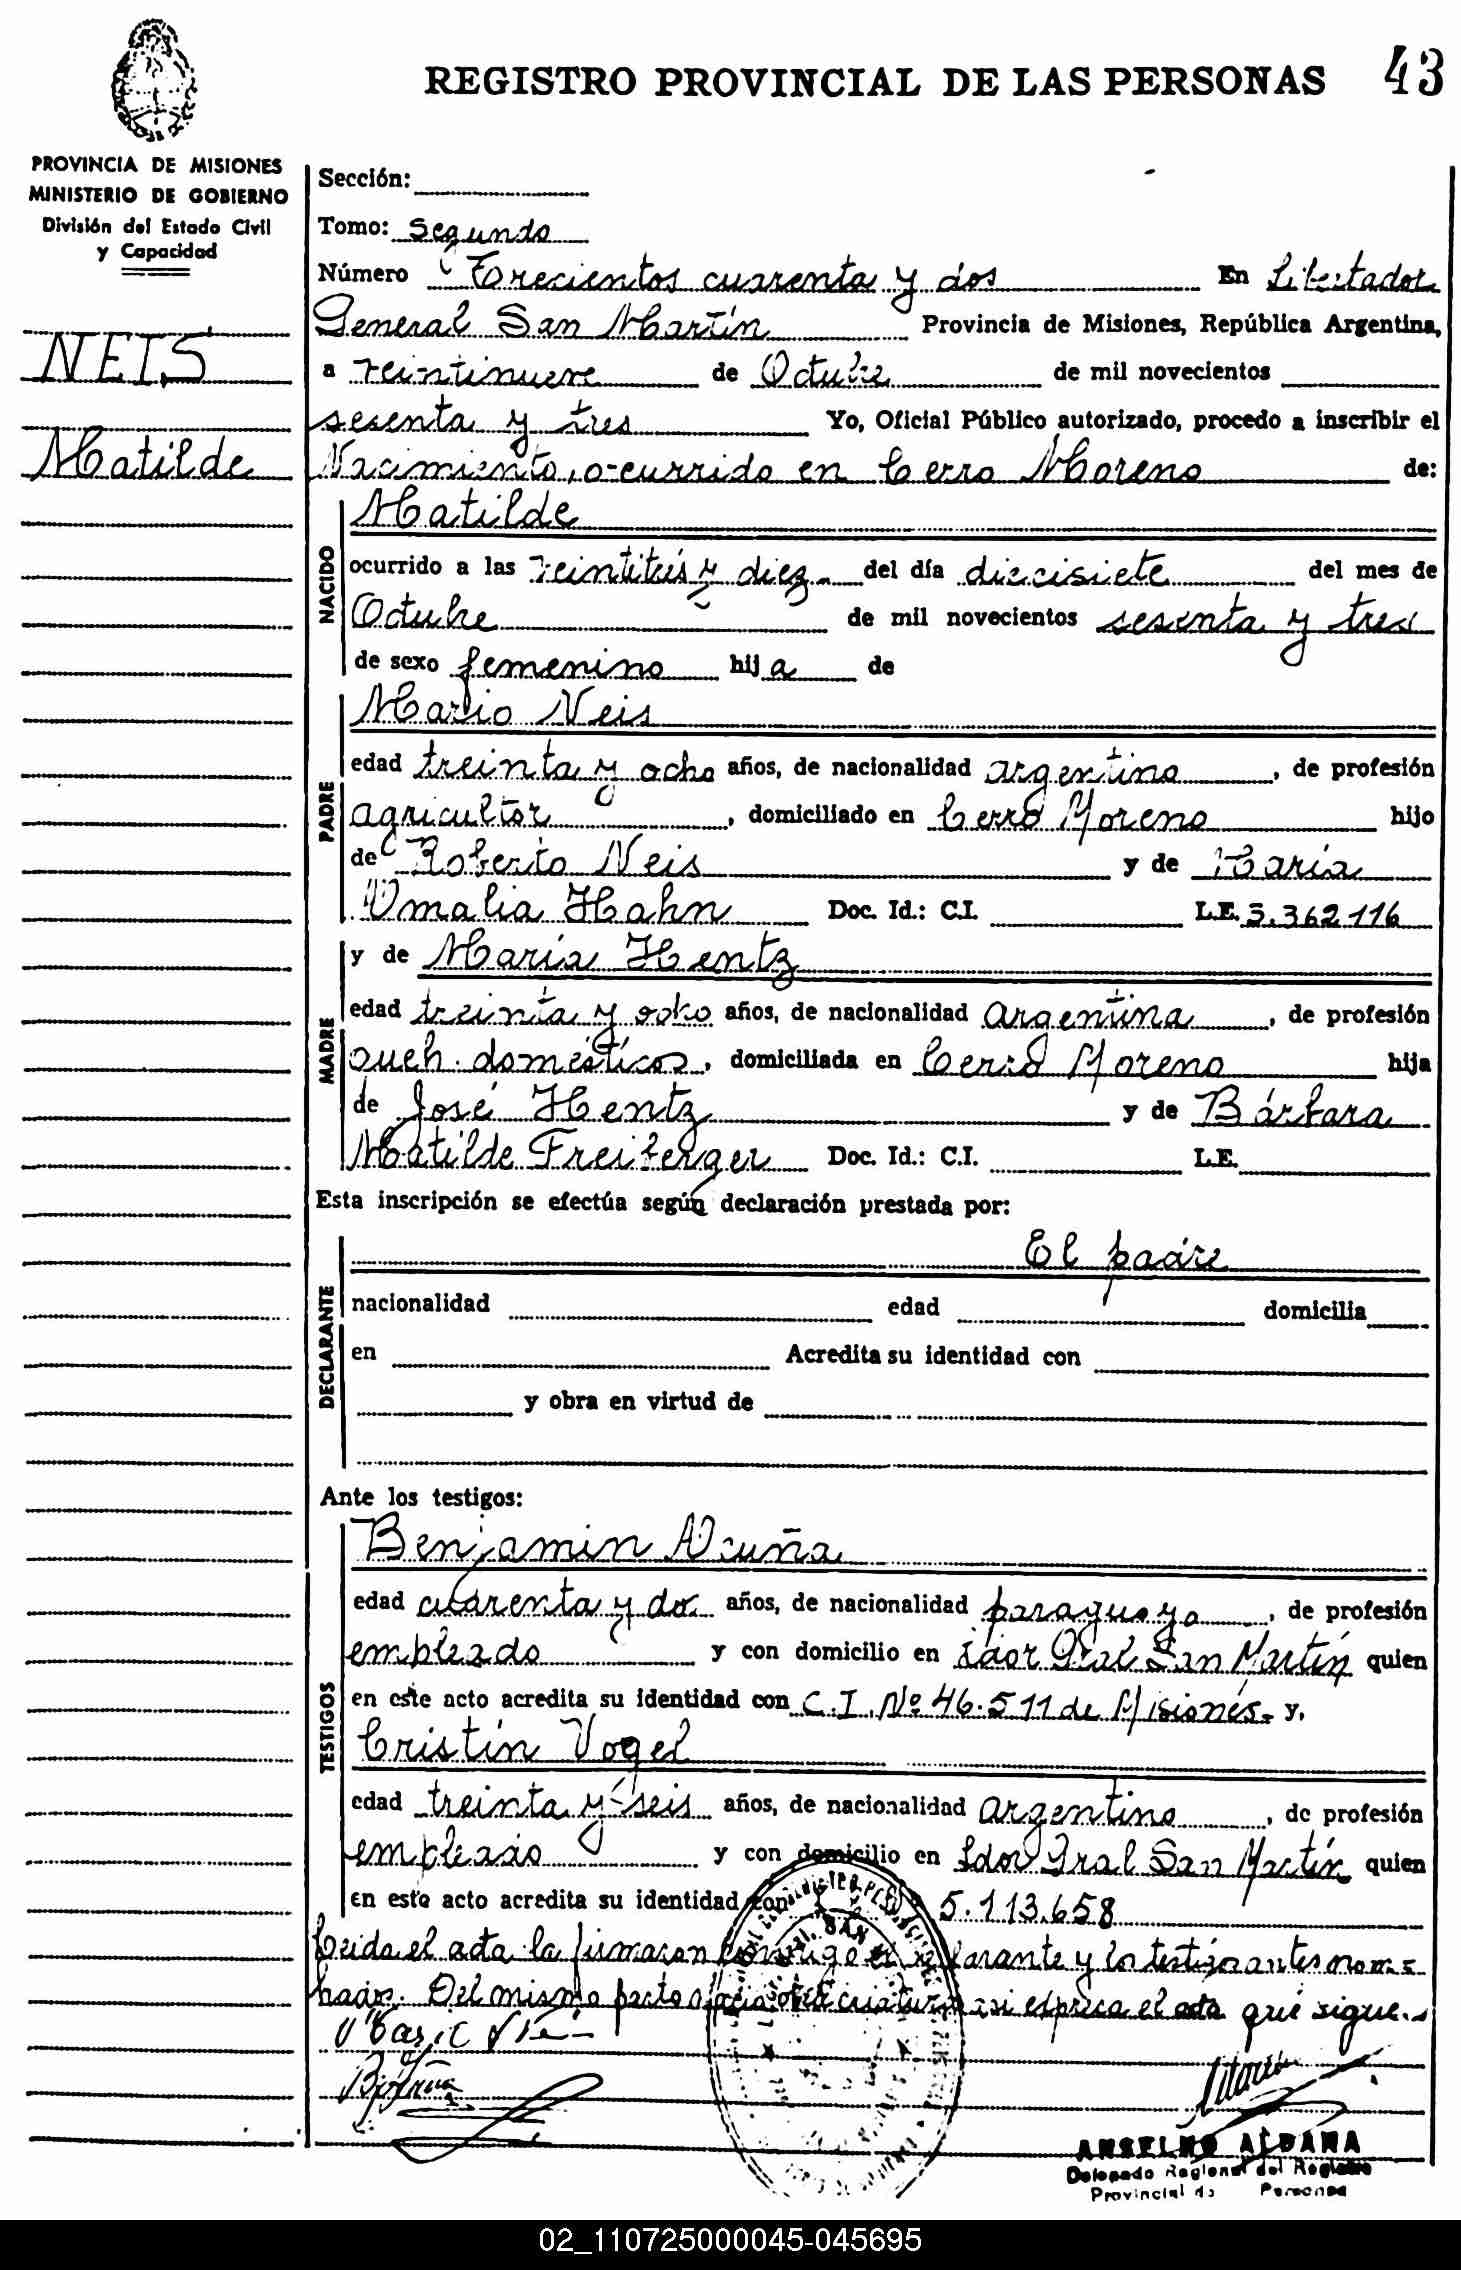 REGISTRO PROVINCIAL DE LAS PERSONAS 43
PROVINCIA DE MISIONES
MINISTERIO DE GOBIERNO
División del Estado Civil
y Capacidad
NEIS
Matilde
Sección:
Tomo: Segundo
Número Trecientos cuarenta y dos En Libertador
General San Martín Provincia de Misiones, República Argentina,
a veintinueve de Octubre de mil novecientos
sesenta y tres Yo, Oficial Público autorizado, procedo a inscribir el
Nacimiento, ocurrido en Cerro Moreno de:
NACIDO
Matilde
ocurrido a las veintitrés y diez del día diecisiete del mes de
Octubre de mil novecientos sesenta y tres
de sexo femenino hija de
PADRE
Mario Neis
edad treinta y ocho años, de nacionalidad argentino, de profesión
agricultor, domiciliado en Cerro Moreno hijo
de Roberto Neis y de María
Amalia Hahn Doc. Id.: C.I. L.E. 5.362.116
MADRE
y de María Hentz
edad treinta y ocho años, de nacionalidad argentina, de profesión
queh. domésticos, domiciliada en Cerro Moreno hija
de José Hentz y de Bárbara
Matilde Freiberger Doc. Id.: C.I. L.E.
Esta inscripción se efectúa según declaración prestada por:
DECLARANTE
El padre
nacionalidad edad domicilia
en Acredita su identidad con
y obra en virtud de
Ante los testigos:
TESTIGOS
Benjamin Acuña
edad cuarenta y dos años, de nacionalidad paraguayo, de profesión
empleado y con domicilio en Ldor Gral San Martín quien
en este acto acredita su identidad con C.I. Nº 46.511 de Misiones y,
Cristín Vogel
edad treinta y seis años, de nacionalidad argentino, de profesión
empleado y con domicilio en Ldor Gral San Martín quien
en este acto acredita su identidad con 5.113.658
Leida el acta la firmaron conmigo el declarante y los testigos antes nom=
brados. Del mismo parto nació otra criatura asi expresa el acta que sigue.
ANSELMO ALDANA
Delegado Regional del Registro
Provincial de Personas
02_110725000045-045695